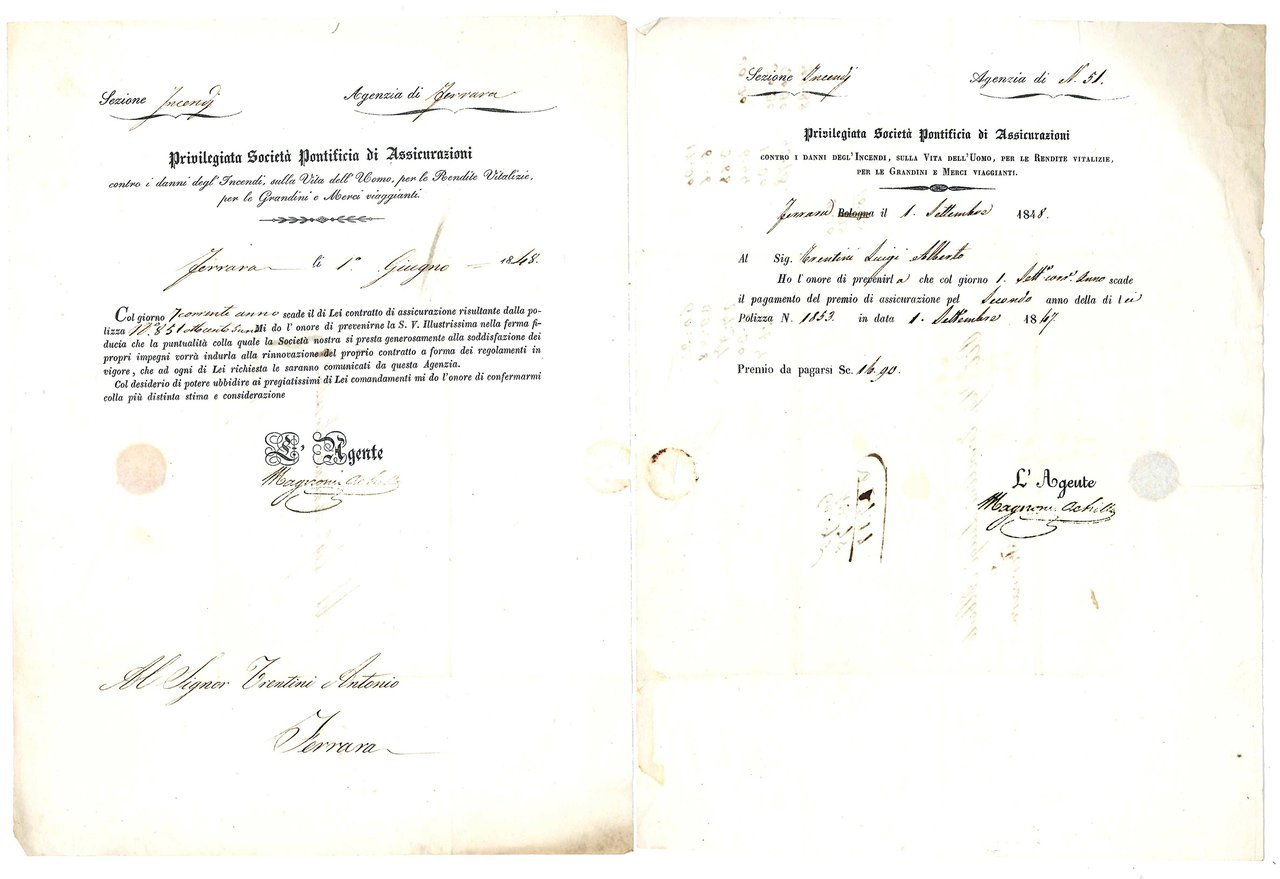 Sezione Incendj
Agenzia di Ferrara
Privilegiata Società Pontificia di Assicurazioni
contro i danni degl'Incendi, sulla Vita dell'Uomo, per le Rendite Vitalizie,
per le Grandini e Merci viaggianti.
Ferrara li 1º Giugno 1848.
Col giorno 7 corrente anno scade il di Lei contratto di assicurazione risultante dalla po-
lizza Nº 851 Mi do l'onore di prevenirne la S. V. Illustrissima nella ferma fi-
ducia che la puntualità colla quale la Società nostra si presta generosamente alla soddisfazione dei
propri impegni vorrà indurla alla rinnovazione del proprio contratto a forma dei regolamenti in
vigore, che ad ogni di Lei richiesta le saranno comunicati da questa Agenzia.
Col desiderio di potere ubbidire ai pregiatissimi di Lei comandamenti mi do l'onore di confermarmi
colla più distinta stima e considerazione
L'Agente
Magnoni Achille
Al Signor Trentini Antonio
Ferrara
Sezione Incendj
Agenzia di Nº 51.
Privilegiata Società Pontificia di Assicurazioni
CONTRO I DANNI DEGL'INCENDI, SULLA VITA DELL'UOMO, PER LE RENDITE VITALIZIE,
PER LE GRANDINI E MERCI VIAGGIANTI.
Ferrara Bologna il 1. Settembre 1848.
Al Sig. Trentini Luigi Alberto
Ho l'onore di prevenirla che col giorno 1. Sett.e corr. Anno scade
il pagamento del premio di assicurazione pel Secondo anno della di lei
Polizza N. 1853. in data 1. Settembre 1847.
Premio da pagarsi Sc. 16.90.
L'Agente
Magnoni Achille